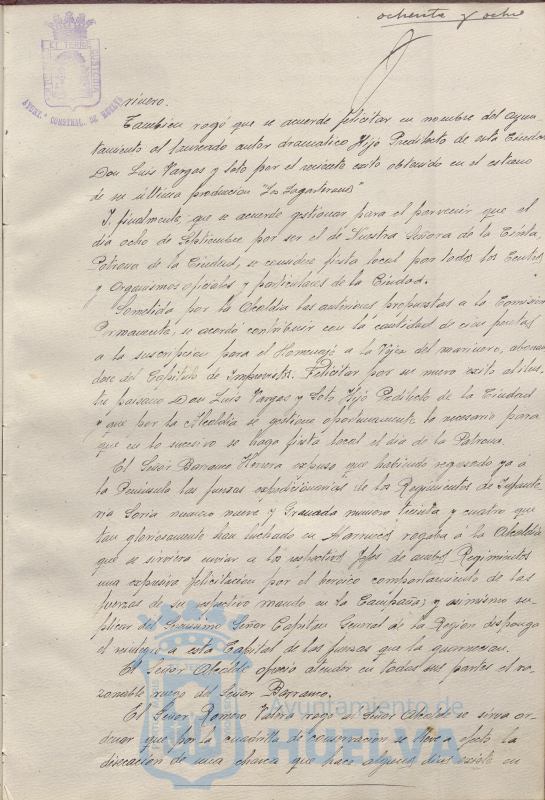 ochenta y ocho
AYUNT.º CONSTNAL. DE HUELVA
rinero.
Tambien rogó que se acuerde felicitar en nombre del Ayun-
tamiento al laureado autor dramatico Hijo Predilecto de esta Ciudad
Don Luis Vargas y Soto por el reciente exito obtenido en el estreno
de su última produccion "Los Lagarteranos"
Y finalmente, que se acuerde gestionar para el porvenir que el
dia ocho de Septiembre por ser el de Nuestra Señora de la Cinta,
Patrona de la Ciudad, se considere fiesta local por todos los Centros
y Organismos oficiales y particulares de la Ciudad.
Sometida por la Alcaldia las anteriores propuestas a la Comision
Permanente, se acordó contribuir con la cantidad de cien pesetas
a la suscripcion para el Homenaje a la Vejez del marinero, abonan-
dose del Capitulo de Imprevistos. Felicitar por su nuevo exito al ilus-
tre paisano Don Luis Vargas y Soto Hijo Predilecto de la Ciudad
y que por la Alcaldia se gestione oportunamente lo necesario para
que en lo sucesivo se haga fiesta local el dia de la Patrona.
El Señor Barranco Herrera expuso que habiendo regresado ya á
la Peninsula las fuerzas expedicionarias de los Regimientos de Infante-
ria Soria numero nueve y Granada numero treinta y cuatro que
tan gloriosamente han luchado en Marruecos rogaba á la Alcaldia
que se sirviera enviar a los respectivos Jefes de ambos Regimientos
una expresiva felicitacion por el heroico comportamiento de las
fuerzas de su respectivo mando en la Campaña; y asimismo su-
plicar del Excmo Señor Capitan General de la Region disponga
el reintegro a esta Capital de las fuerzas que la guarnecian.
El Señor Alcalde ofreció atender en todas sus partes el ra-
zonable ruego del Señor Barranco.
El Señor Romero Valera rogó al Señor Alcalde se sirva or-
denar que por la cuadrilla de conservacion se lleve a efecto la
disecacion de una charca que hace algunos dias existe en
Ayuntamiento de
HUELVA